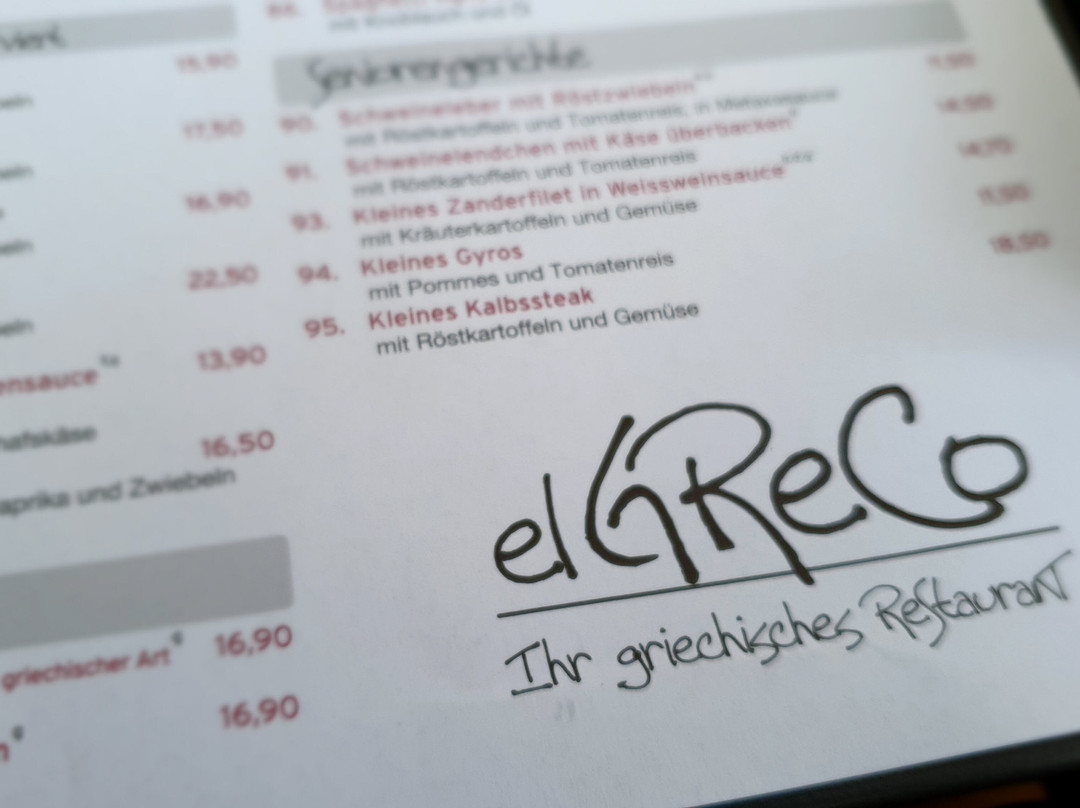 15,90
17,50
16,90
22,50
13,90
ensauce
16,50
hafskäse
aprika und Zwiebeln
griechischer Art 16,90
16,90
mit Knoblauch und Öl
Seniorengerichte
90. Schweineleber mit Röstzwiebeln
mit Röstkartoffeln und Tomatenreis, in Metaxasauce
91. Schweinelendchen mit Käse überbacken
mit Röstkartoffeln und Tomatenreis
93. Kleines Zanderfilet in Weissweinsauce
mit Kräuterkartoffeln und Gemüse
94. Kleines Gyros
mit Pommes und Tomatenreis
95. Kleines Kalbssteak 18,50
mit Röstkartoffeln und Gemüse
elGReCo
Ihr griechisches Restaurant